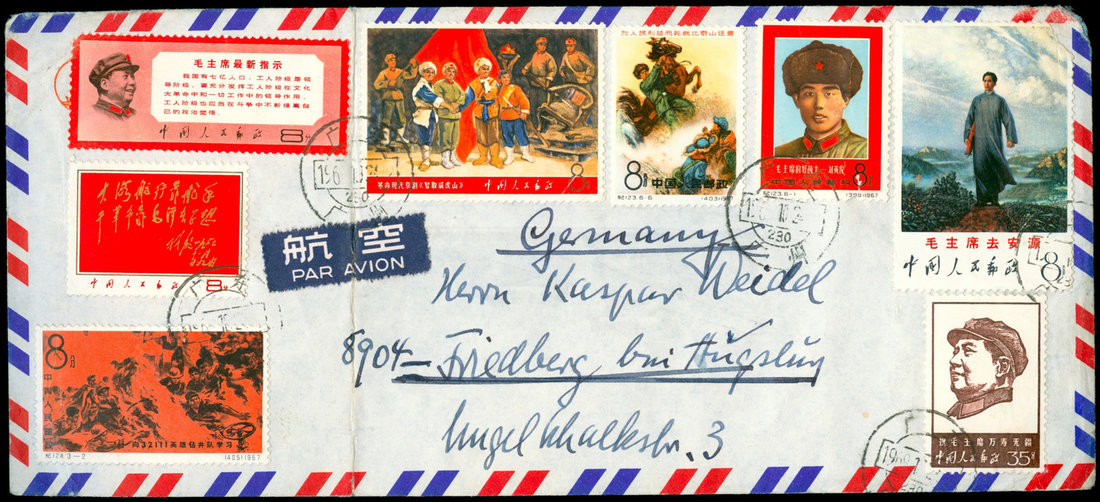 毛主席最新指示
我国有七亿人口，工人阶级是领
导阶级。要充分发挥工人阶级在文化
大革命中和一切工作中的领导作用。
工人阶级也应当在斗争中不断提高自
己的政治觉悟。
中国人民邮政 8分
革命现代京剧《智取威虎山》 中国人民邮政 8分
为人民利益而死就比泰山还重
8分 中国人民邮政
纪123.6-6 (403)1967
毛主席的好战士—刘英俊
中国人民邮政 8分
纪123.6-1 (398)1967
毛主席去安源
中国人民邮政 8分
大海航行靠舵手
干革命靠毛泽东思想
林彪
中国人民邮政 8分
航空
PAR AVION
广东
230
230
Germany
Herrn Kaspar Weidel
8904-Friedberg bei Augsburg
Engelschalkstr. 3
8分
中国人民邮政
向32111英雄钻井队学习
纪124.3-2 (405)1967
祝毛主席万寿无疆
中国人民邮政 35分